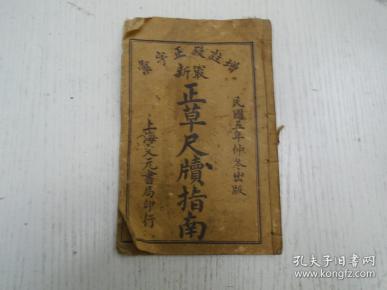 最新
正草尺牘指南
民國五年仲冬出版
上海文元書局印行
孔夫子旧书网
www.kongfz.com